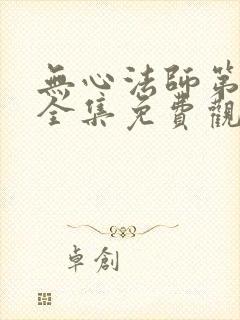 無心法師第
全集免費觀
卓創